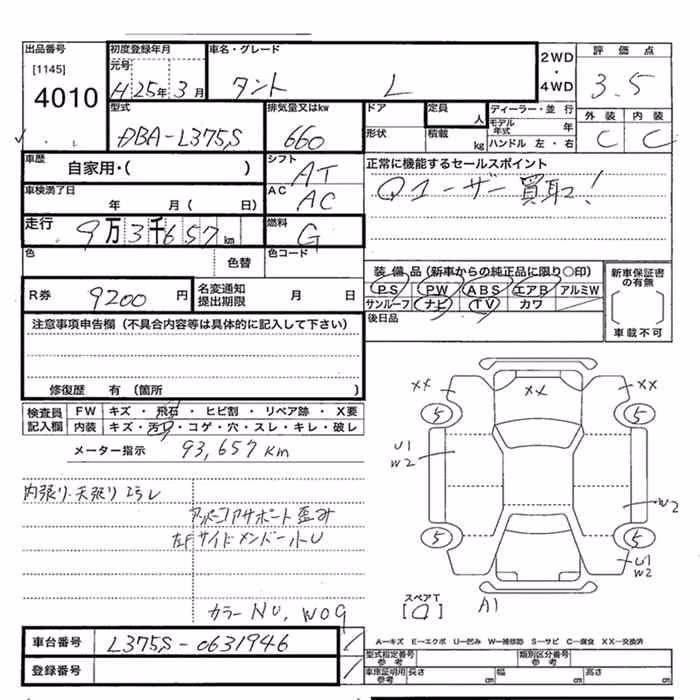 出品番号
[1145]
4010
初度登録年月
元号
H25年3月
車名・グレード
タント L
2WD
・
4WD
評価点
3.5
型式
DBA-L375S
排気量又はkw
660
ドア
形状
定員
人
積載
kg
ディーラー・並行
モデル年式
年
ハンドル 左・右
外装
内装
C
C
車歴
自家用・( )
シフト
AT
正常に機能するセールスポイント
Q1ーザー買取!
車検満了日
年 月( 日)
AC
AC
走行
9万3千657km
燃料
G
色
色替
色コード
R券
9200円
名変通知
提出期限
月 日
装備品(新車からの純正品に限り○印)
PS PW ABS エアB アルミW
サンルーフ ナビ TV カワ
後日品
新車保証書
の有無
車載不可
注意事項申告欄(不具合内容等は具体的に記入して下さい)
修復歴 有(箇所 )
検査員
記入欄
FW キズ・飛石・ヒビ割・リペア跡・X要
内装 キズ・汚レ・コゲ・穴・スレ・キレ・破レ
メーター指示
93,657Km
内張り・天張り
アッパーコアサポート歪み
左Fサイドメンバー小U
カラーNO, W09
XX
XX
XX
5
5
U1
W2
W2
5
5
U1
W2
スペアT
A1
車台番号
L375S-0631946
登録番号
A―キズ E―エクボ U―凹み W―補修跡 S―サビ C―腐食 XX―交換済
型式指定番号
参考
類別区分番号
参考
車庫証明用
参考
長さ cm
幅 cm
高さ cm